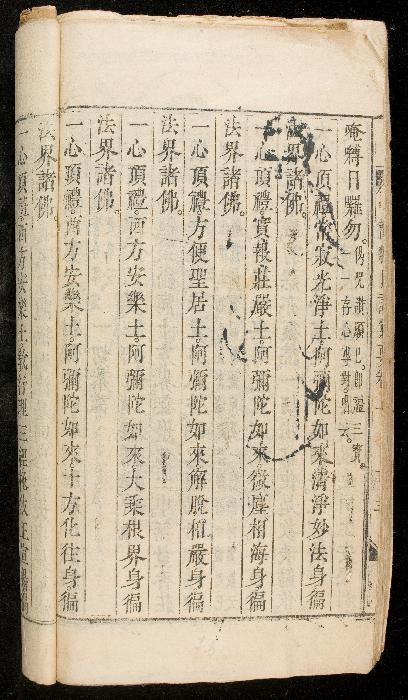 唵嚩日囉勿。偈咒讚頌已。即禮三寶。存心專對。唱云。
一心頂禮。安寂光淨土。阿彌陀如來。清淨妙法身徧
法界諸佛。
一心頂禮。實報莊嚴土。阿彌陀如來。微塵相海身徧
法界諸佛。
一心頂禮。方便聖居土。阿彌陀如來。解脫相嚴身徧
法界諸佛。
一心頂禮。西方安樂土。阿彌陀如來。大乘根界身徧
法界諸佛。
一心頂禮。西方安樂土。阿彌陀如來。十方化往身徧
法界諸佛。
一心頂禮西方安樂土教行理三